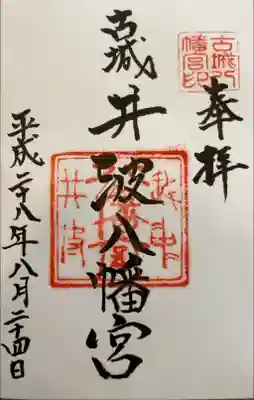 奉拝
古城井波八幡宮
平成二十八年八月二十四日
古城八
幡宮印
越中
井波